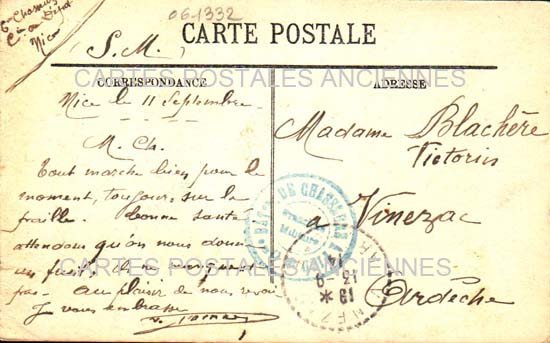 6e Chasseurs
Cie au Dépôt
Nice
06-1332
(S. M.)
CARTE POSTALE
CARTES POSTALES ANCIENNES
CORRESPONDANCE
ADRESSE
Nice le 11 Septembre
M. Ch.
Tout marche bien pour le
moment, toujours sur la
fraille. bonne santé
attendons qu'on nous donne
un fusil
au plaisir de nous revoir
Je vous embrasse
Madame Blachère
Victorin
a Vinezac
Ardèche
BATON DE CHASSEURS
CARTES POSTALES ANCIENNES
13 -9
14